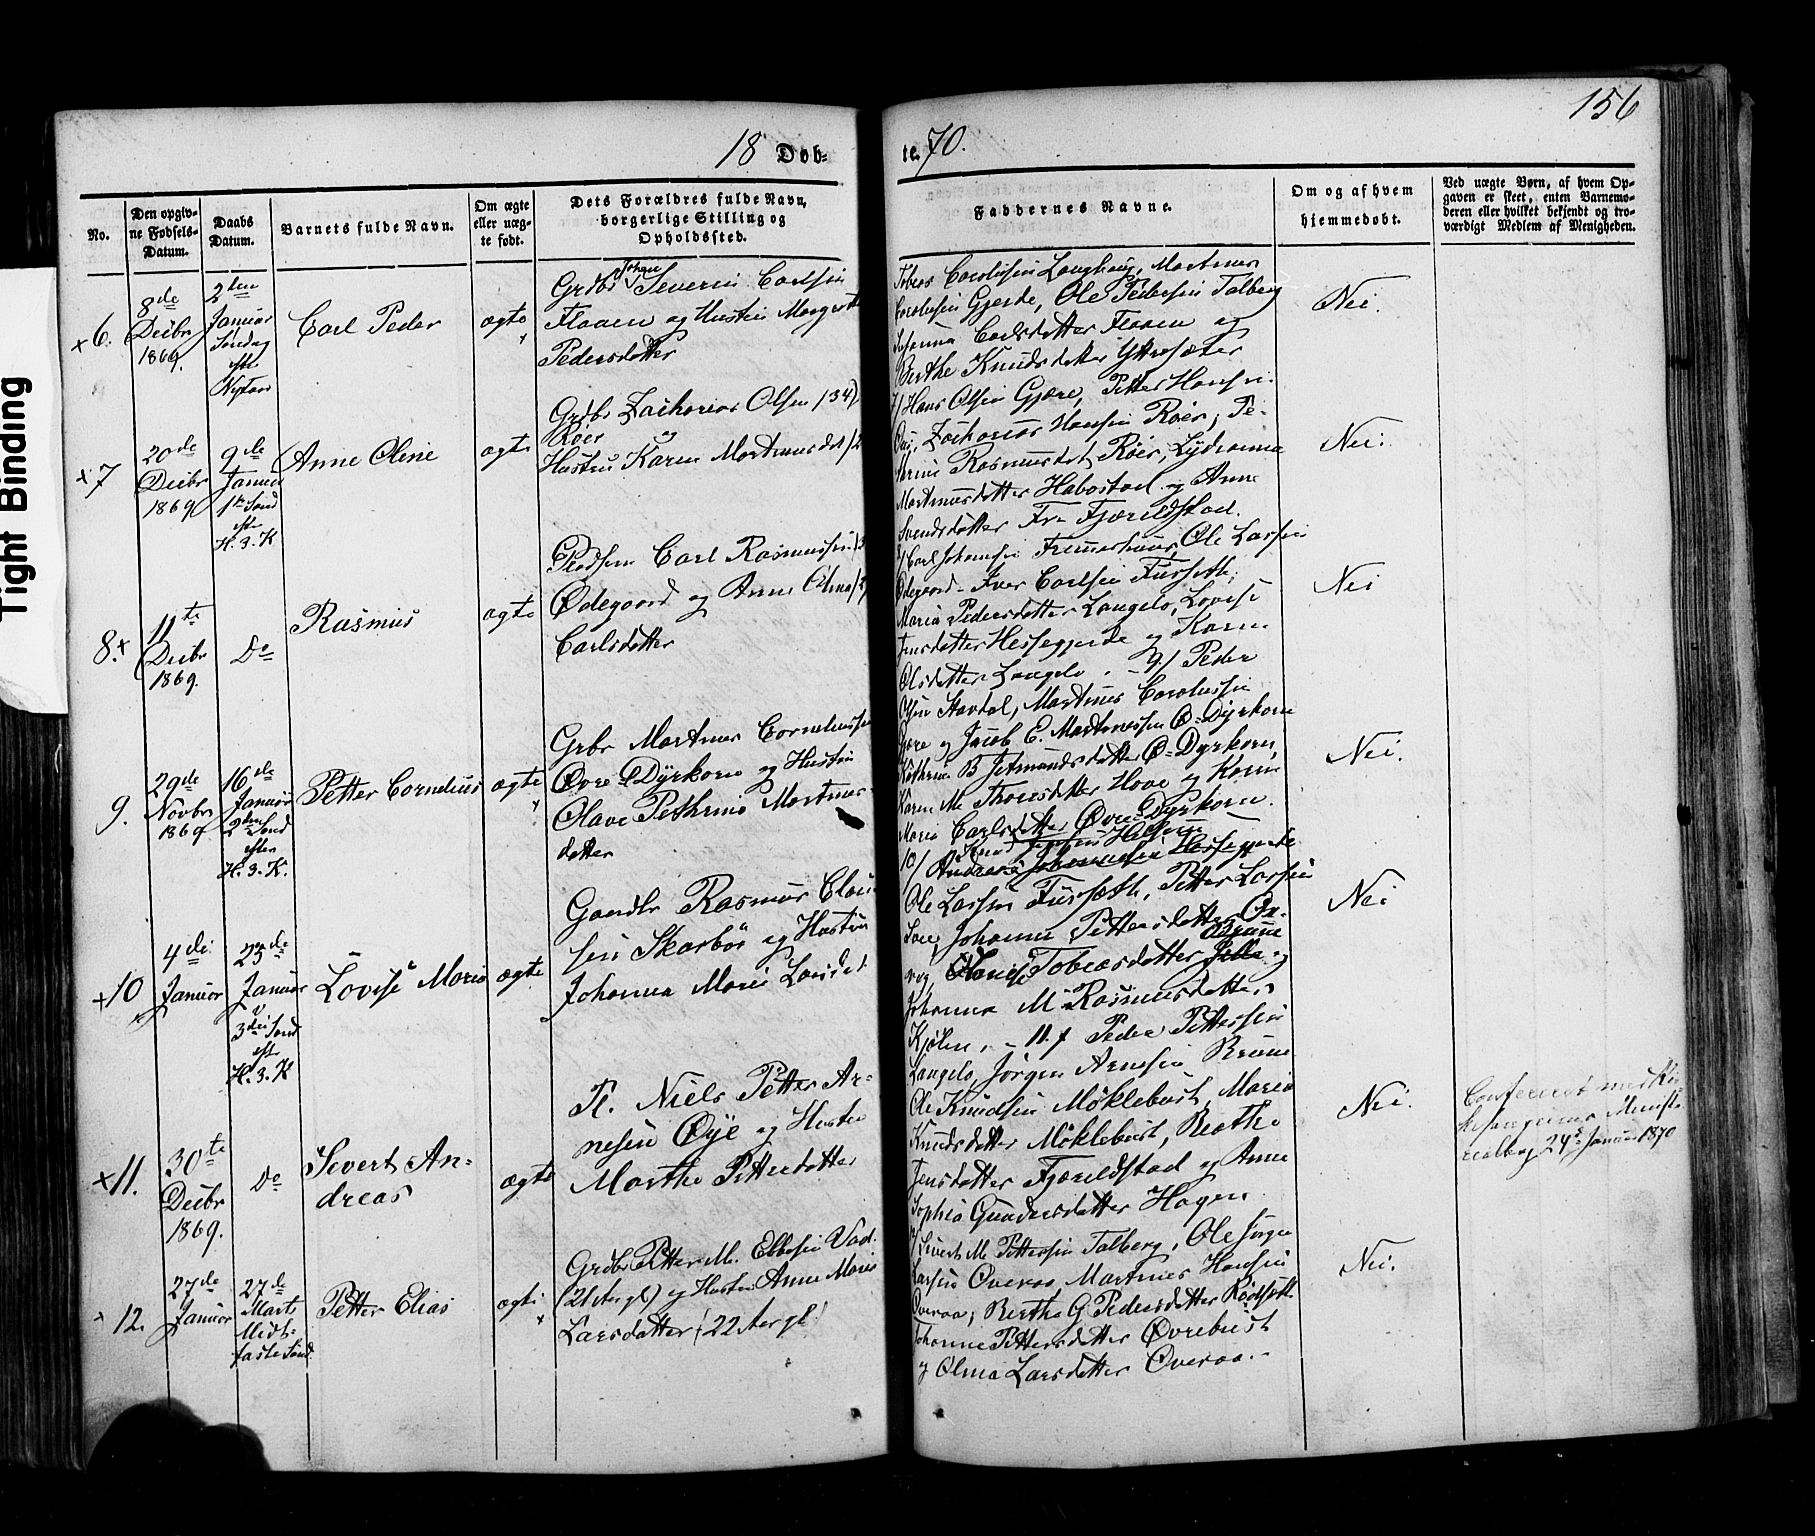 Tight Binding
156
18 Døb-
te. 70.
No.
Den opgiv-
ne Fødsels-
Datum.
Daabs
Datum.
Barnets fulde Navn.
Om ægte
eller uæg-
te født.
Dets Forældres fulde Navn,
borgerlige Stilling og
Opholdssted.
Faddernes Navne.
Om og af hvem
hjemmedøbt.
Ved uægte Børn, af hvem Op-
gaven er skeet, enten Barnemo-
deren eller hvilket bekjendt og tro-
værdigt Medlem af Menigheden.
x6.
8de
Decbr
1869.
2den
Januar
Søndag
eftr
Nytaar
Carl Peder
ægte
Grdbr Johan Severin Carlsen
Flaaen og Hustru Margrethe
Pedersdatter
Tobias Carolussen Langhaug, Martinus
Carolussen Gjerde, Ole Pedersen Talberg
Johanna Carlsdatter Flaaen og
Berthe Knudsdatter Yttresæter
Nei.
x7
20de
Decbr
1869
9de
Januar
1ste Sønd
eftr
H. 3. K
Anne Oline
ægte
Grdbr Zacharias Olsen (34)
Røer og
Hustru Karen Martinusdet
7/ Hans Olsen Gjære, Petter Hansen
Zacharias Hansen Røer, Pe-
Rasmusdet Røer, Lydianna
Martinusdatter Habostad og Anne
Svendsdatter Fjæreldstad.
Nei.
8.x
11te
Decbr
1869.
Do
Rasmus
ægte
Pladsm Carl Rasmussen
Ødegaard og Anne Olina
Carlsdatter
Carl Johansen Fremerhuus, Ole Larsen
Ødegaard - Iver Carlsen Furseth,
Maria Pedersdatter Langelo, Lovise
Jensdatter Hessegjerde og Karen
Olsdatter Langelo. - 9/ Peder
Nei
9.
29de
Novbr
1869
16de
Januar
2den Sønd
efter
H. 3. K.
Petter Cornelius
ægte
Grbr Martinus Corneliussen
Øvre Dyrkorn og Hustru
Olave Pethrine Martinus-
datter
Olsen Stavdal, Martinus Carolussen
Gjære og Jacob E. Martinussen Ø-Dyrkorn
Kathrine B Jetmundsdatter Ø-Dyrkorn,
Karen M. Thoresdatter Hove og Karen
Maria Carlsdatter Øvre-Dyrkorn.
Nei.
x10
4de
Januar
23de
Januar
3die Sønd
eftr
H. 3. K
Lovise Marie
ægte
Gaardbr Rasmus Clau-
sen Skarbø og Hustru
Johanna Marie Larsdet
10/ Andreas Johannesen Hessegjerde
Ole Larsen Furseth, Petter Larsen
Johanne Pettersdatter
Tobiasdatter Brune og
Johanna M. Rasmusdatter
Kjølen. - 11./ Peder Pettersen
Nei
x11.
30te
Decbr
1869.
Do
Severt An-
dreas
ægte
Niels Petter Ar-
nesen Øye og Hustru
Marthe Pettersdatter
Langelo, Jørgen Arnesen Brune
Ole Knudsen Møklebust, Marie
Knudsdatter Møklebust, Berthe
Jensdatter Fjæreldstad og Anne
Sophia Gundersdatter Hagen
Nei.
Confereret med Ki-
Minist-
24de Januar 1870
x12.
27de
Januar
27de
Marts
Midt-
faste Sønd.
Petter Elias
ægte
Grdbr Petter M. Ebbesen Vad.
(21 Aar gl) og Hustru Anne Marie
Larsdatter (22 Aar gl)
Sivert M. Pettersen Talberg, Ole Jørgen
Larsen Overaa, Martinus Hansen
Overaa, Berthe G. Pedersdatter Rødsæt
Johanne Pettersdatter Øvrebust
og Olina Larsdatter Overaa.
Nei.